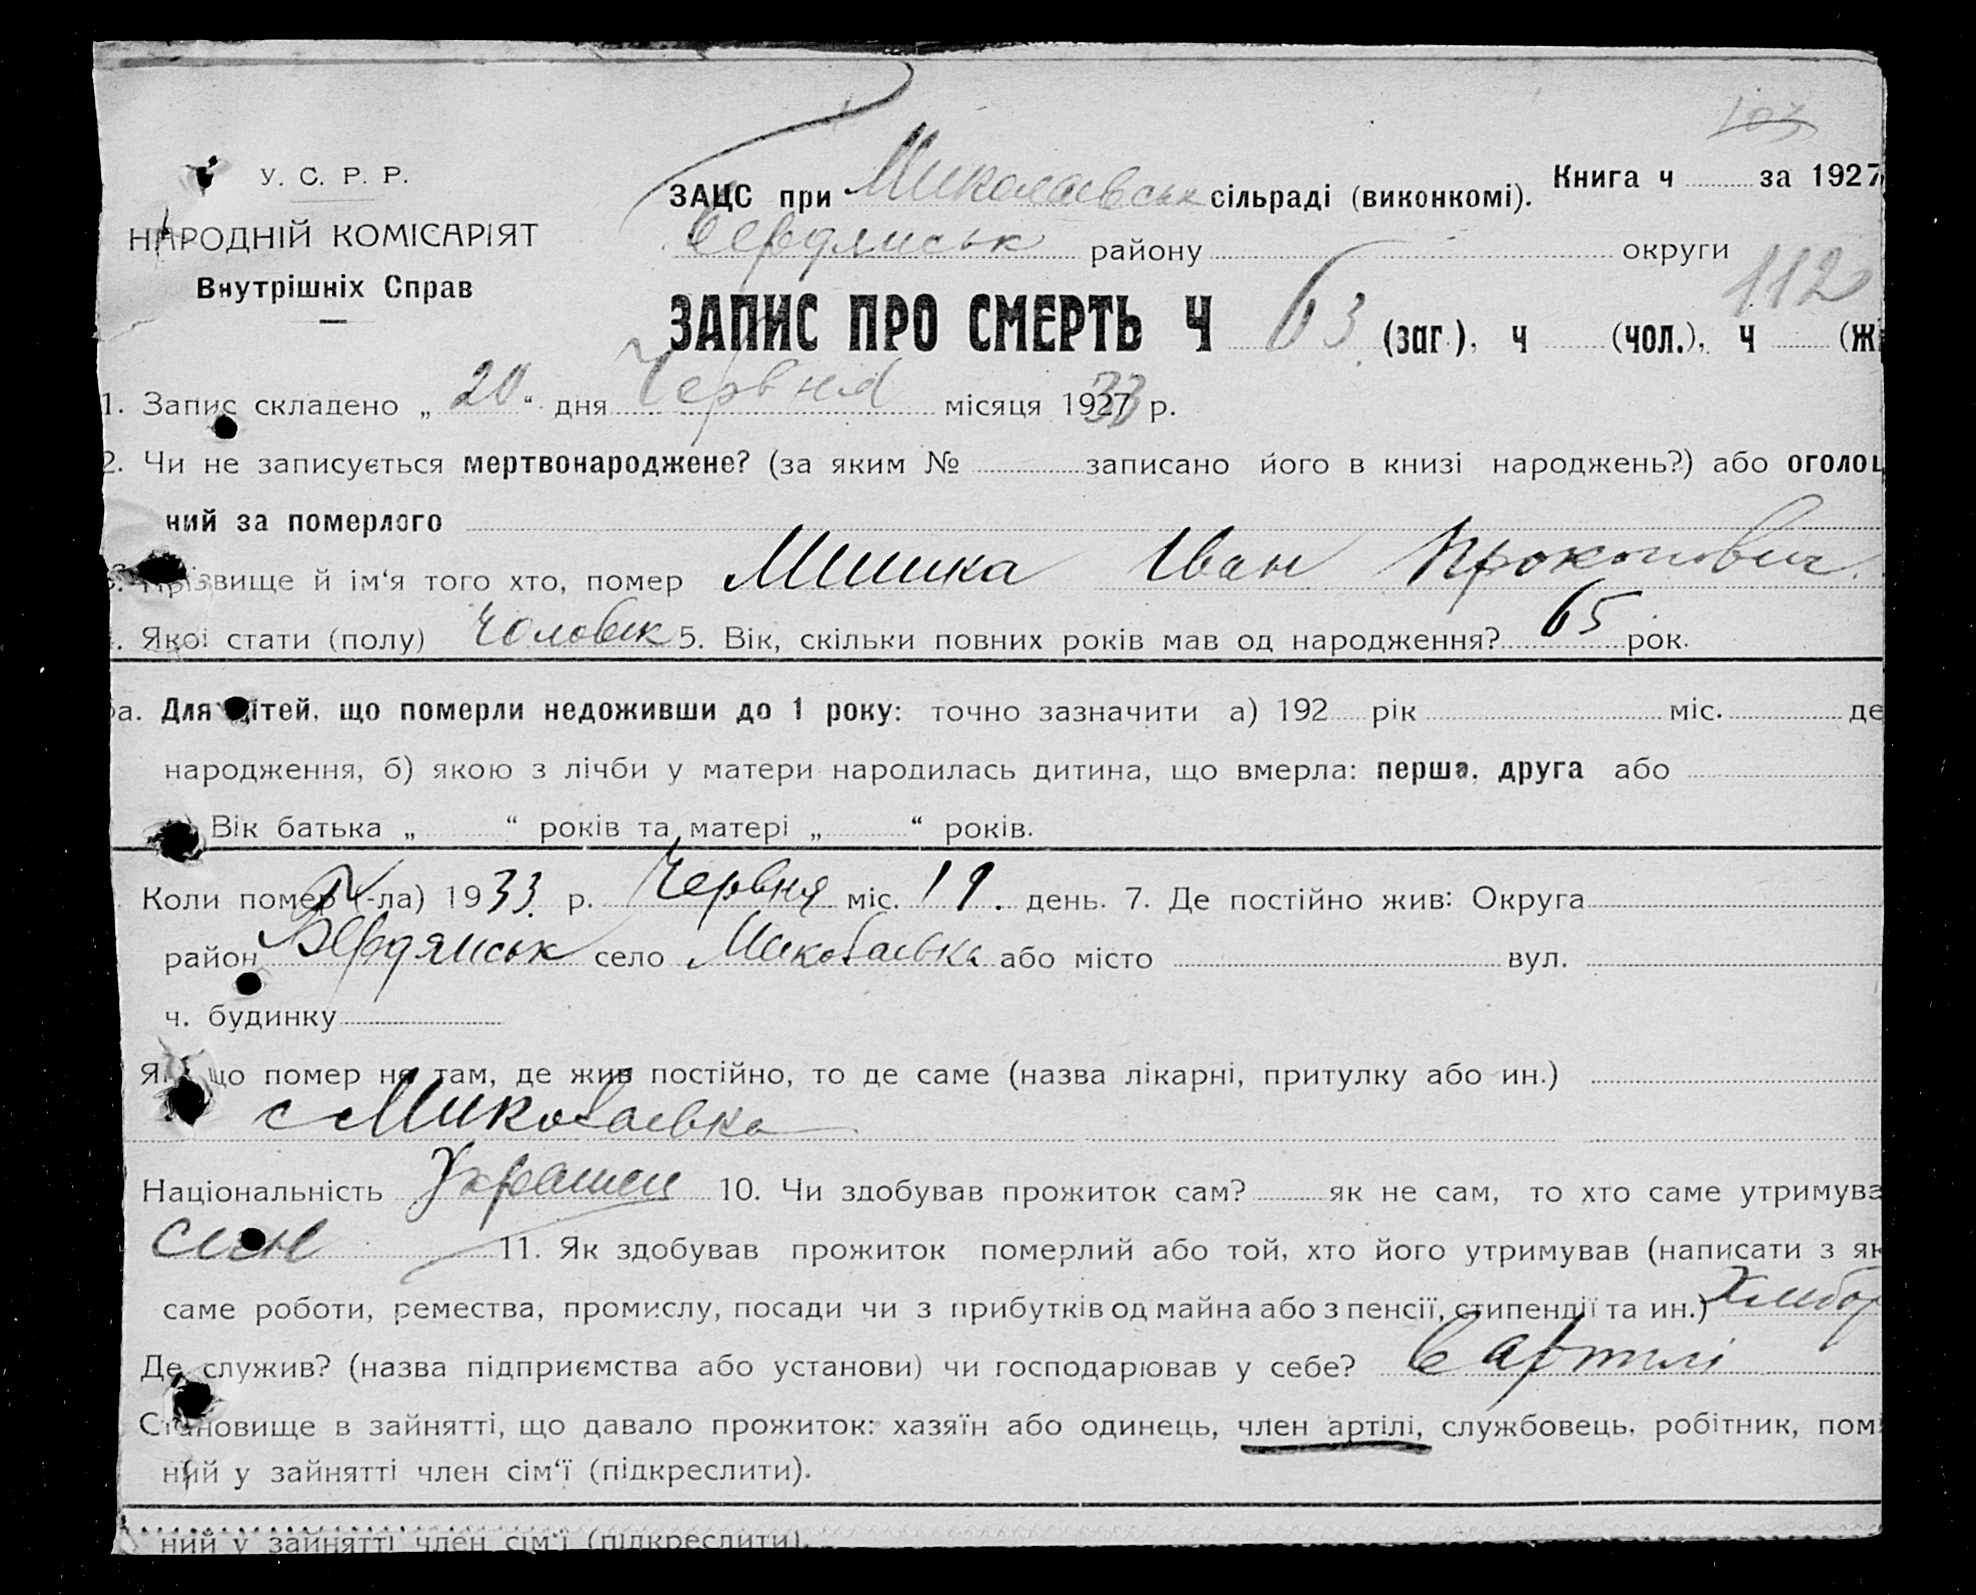 103
У. С. Р. Р.
НАРОДНІЙ КОМІСАРІЯТ
Внутрішніх Справ
ЗАЦС при Миколаевськ сільраді (виконкомі). Книга ч за 1927
Бердянськ району округи
112
ЗАПИС ПРО СМЕРТЬ Ч 63 (заг.), ч (чол.), ч (жі
1. Запис складено „ 20 “ дня Червня місяця 192733 р.
2. Чи не записується мертвонароджене? (за яким № записано його в книзі народжень?) або оголош
ний за померлого
3. Прізвище й ім‘я того хто, помер Мишка Іван Прокопович
. Якої стати (полу) Чоловік 5. Вік, скільки повних років мав од народження? 65 рок.
5а. Для дітей, що померли недоживши до 1 року: точно зазначити а) 192 рік міс. де
народження, б) якою з лічби у матери народилась дитина, що вмерла: перша, друга або
Вік батька „ “ років та матері „ “ років.
Коли помер (-ла) 1933 р. Червня міс. 19 день. 7. Де постійно жив: Округа
район Бердянськ село Миколаевка або місто вул.
ч. будинку
Якщо помер не там, де жив постійно, то де саме (назва лікарні, притулку або ин.)
с Миколаевка
Національність Украинец 10. Чи здобував прожиток сам? як не сам, то хто саме утримува
син 11. Як здобував прожиток померлий або той, хто його утримував (написати з як
саме роботи, ремества, промислу, посади чи з прибутків од майна або з пенсії, стипендії та ин.) Хлибор
Де служив? (назва підприємства або установи) чи господарював у себе? в артилі
Становище в зайнятті, що давало прожиток: хазяїн або одинець, член артілі, службовець, робітник, помі
ний у зайнятті член сім‘ї (підкреслити).
ний у зайнятті член сім‘ї (підкреслити).